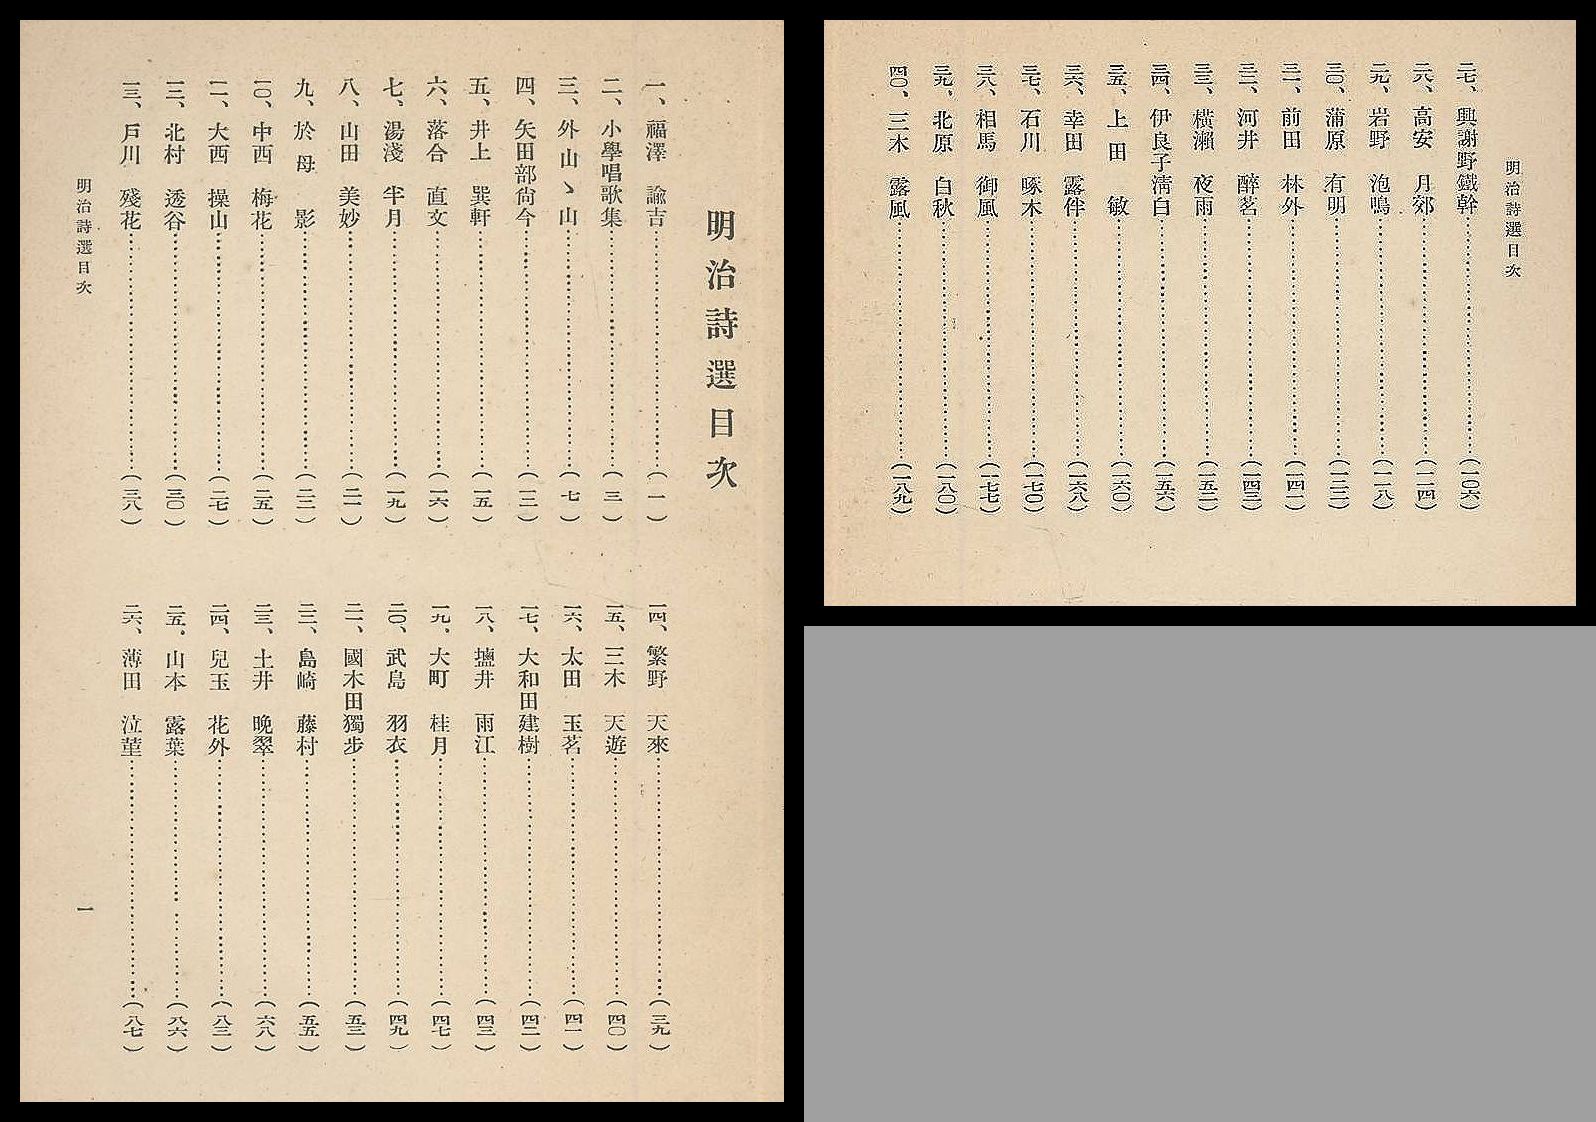 明治詩選目次
一、福澤 諭吉…(一)
二、小學唱歌集…(三)
三、外山ヽ山…(七)
四、矢田部尙今…(一二)
五、井上 巽軒…(一五)
六、落合 直文…(一六)
七、湯淺 半月…(一九)
八、山田 美妙…(二一)
九、於母 影…(二二)
一〇、中西 梅花…(二五)
一一、大西 操山…(二七)
一二、北村 透谷…(三〇)
一三、戶川 殘花…(三八)
一四、繁野 天來…(三九)
一五、三木 天遊…(四〇)
一六、太田 玉茗…(四一)
一七、大和田建樹…(四二)
一八、塩井 雨江…(四三)
一九、大町 桂月…(四七)
二〇、武島 羽衣…(四九)
二一、國木田獨步…(五三)
二二、島崎 藤村…(五五)
二三、土井 晚翠…(六八)
二四、兒玉 花外…(八三)
二五、山本 露葉…(八六)
二六、薄田 泣菫…(八七)
明治詩選目次
一
明治詩選目次
二七、興謝野鐵幹…(一〇六)
二八、高安 月郊…(一一四)
二九、岩野 泡鳴…(一一八)
三〇、蒲原 有明…(一二二)
三一、前田 林外…(一四一)
三二、河井 醉茗…(一四三)
三三、橫瀨 夜雨…(一五二)
三四、伊良子淸白…(一五六)
三五、上田 敏…(一六〇)
三六、幸田 露伴…(一六八)
三七、石川 啄木…(一七〇)
三八、相馬 御風…(一七七)
三九、北原 白秋…(一八〇)
四〇、三木 露風…(一八九)